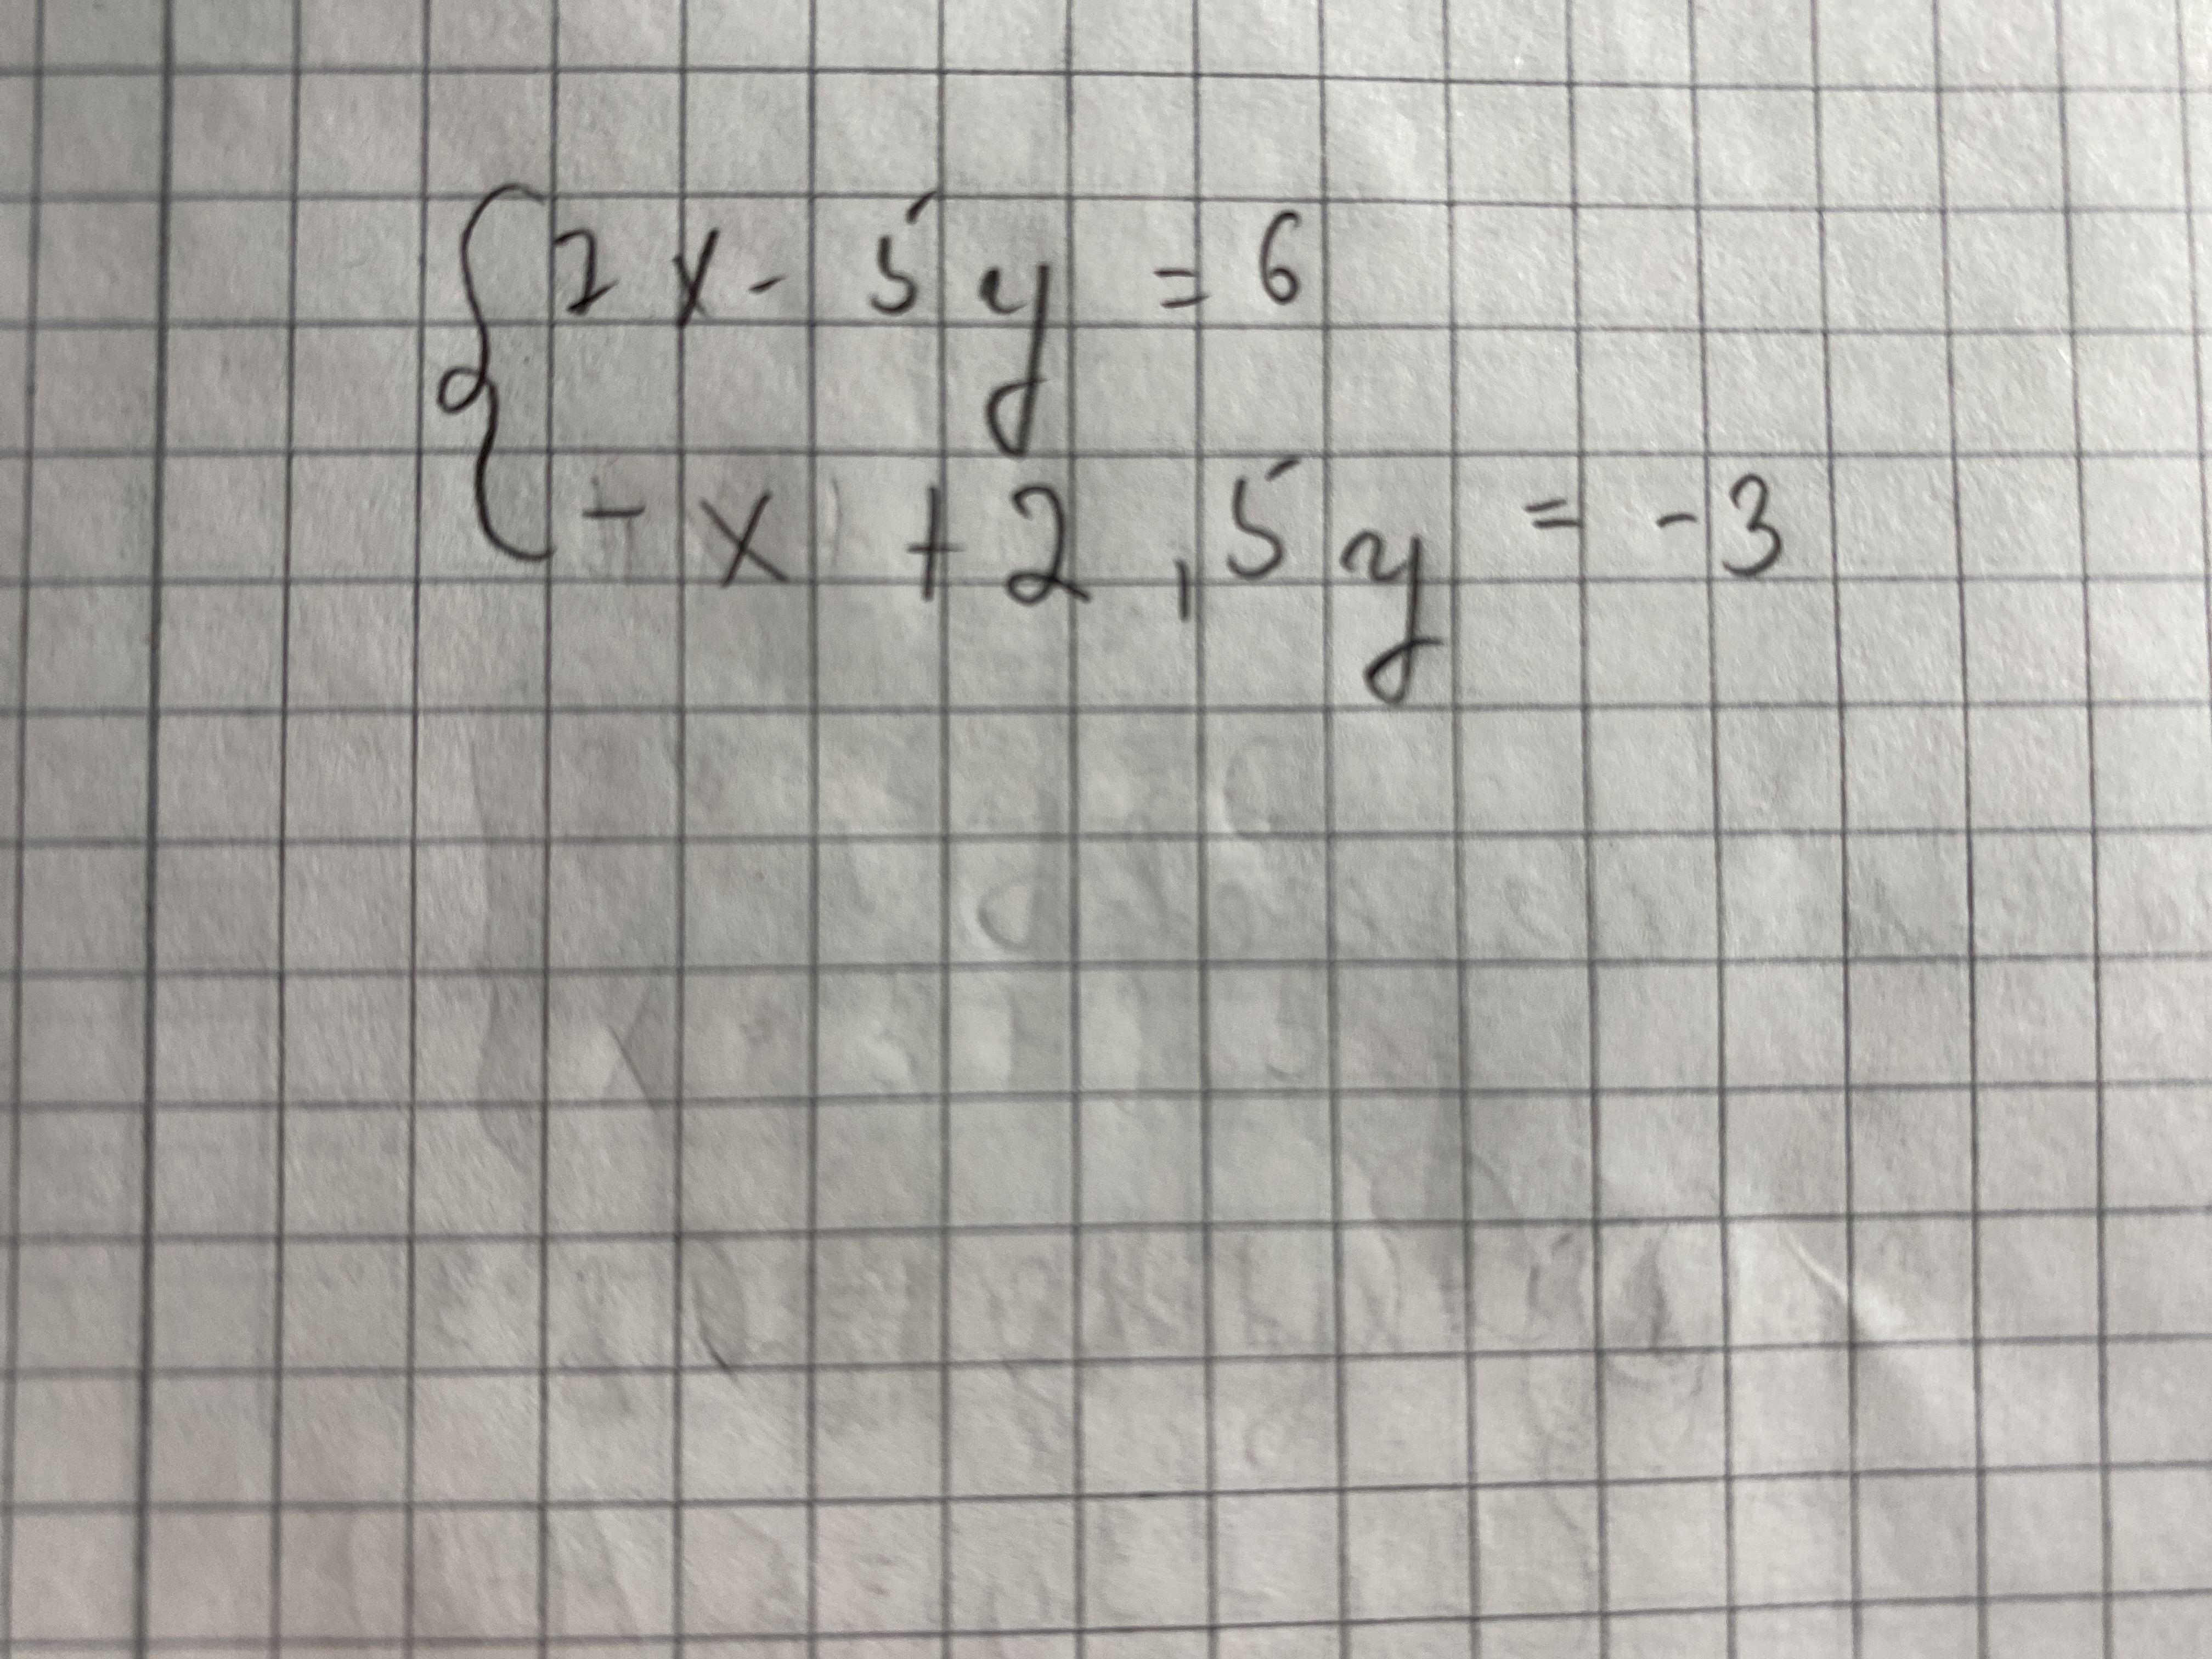 { 2x - 5y = 6
- x + 2,5y = -3